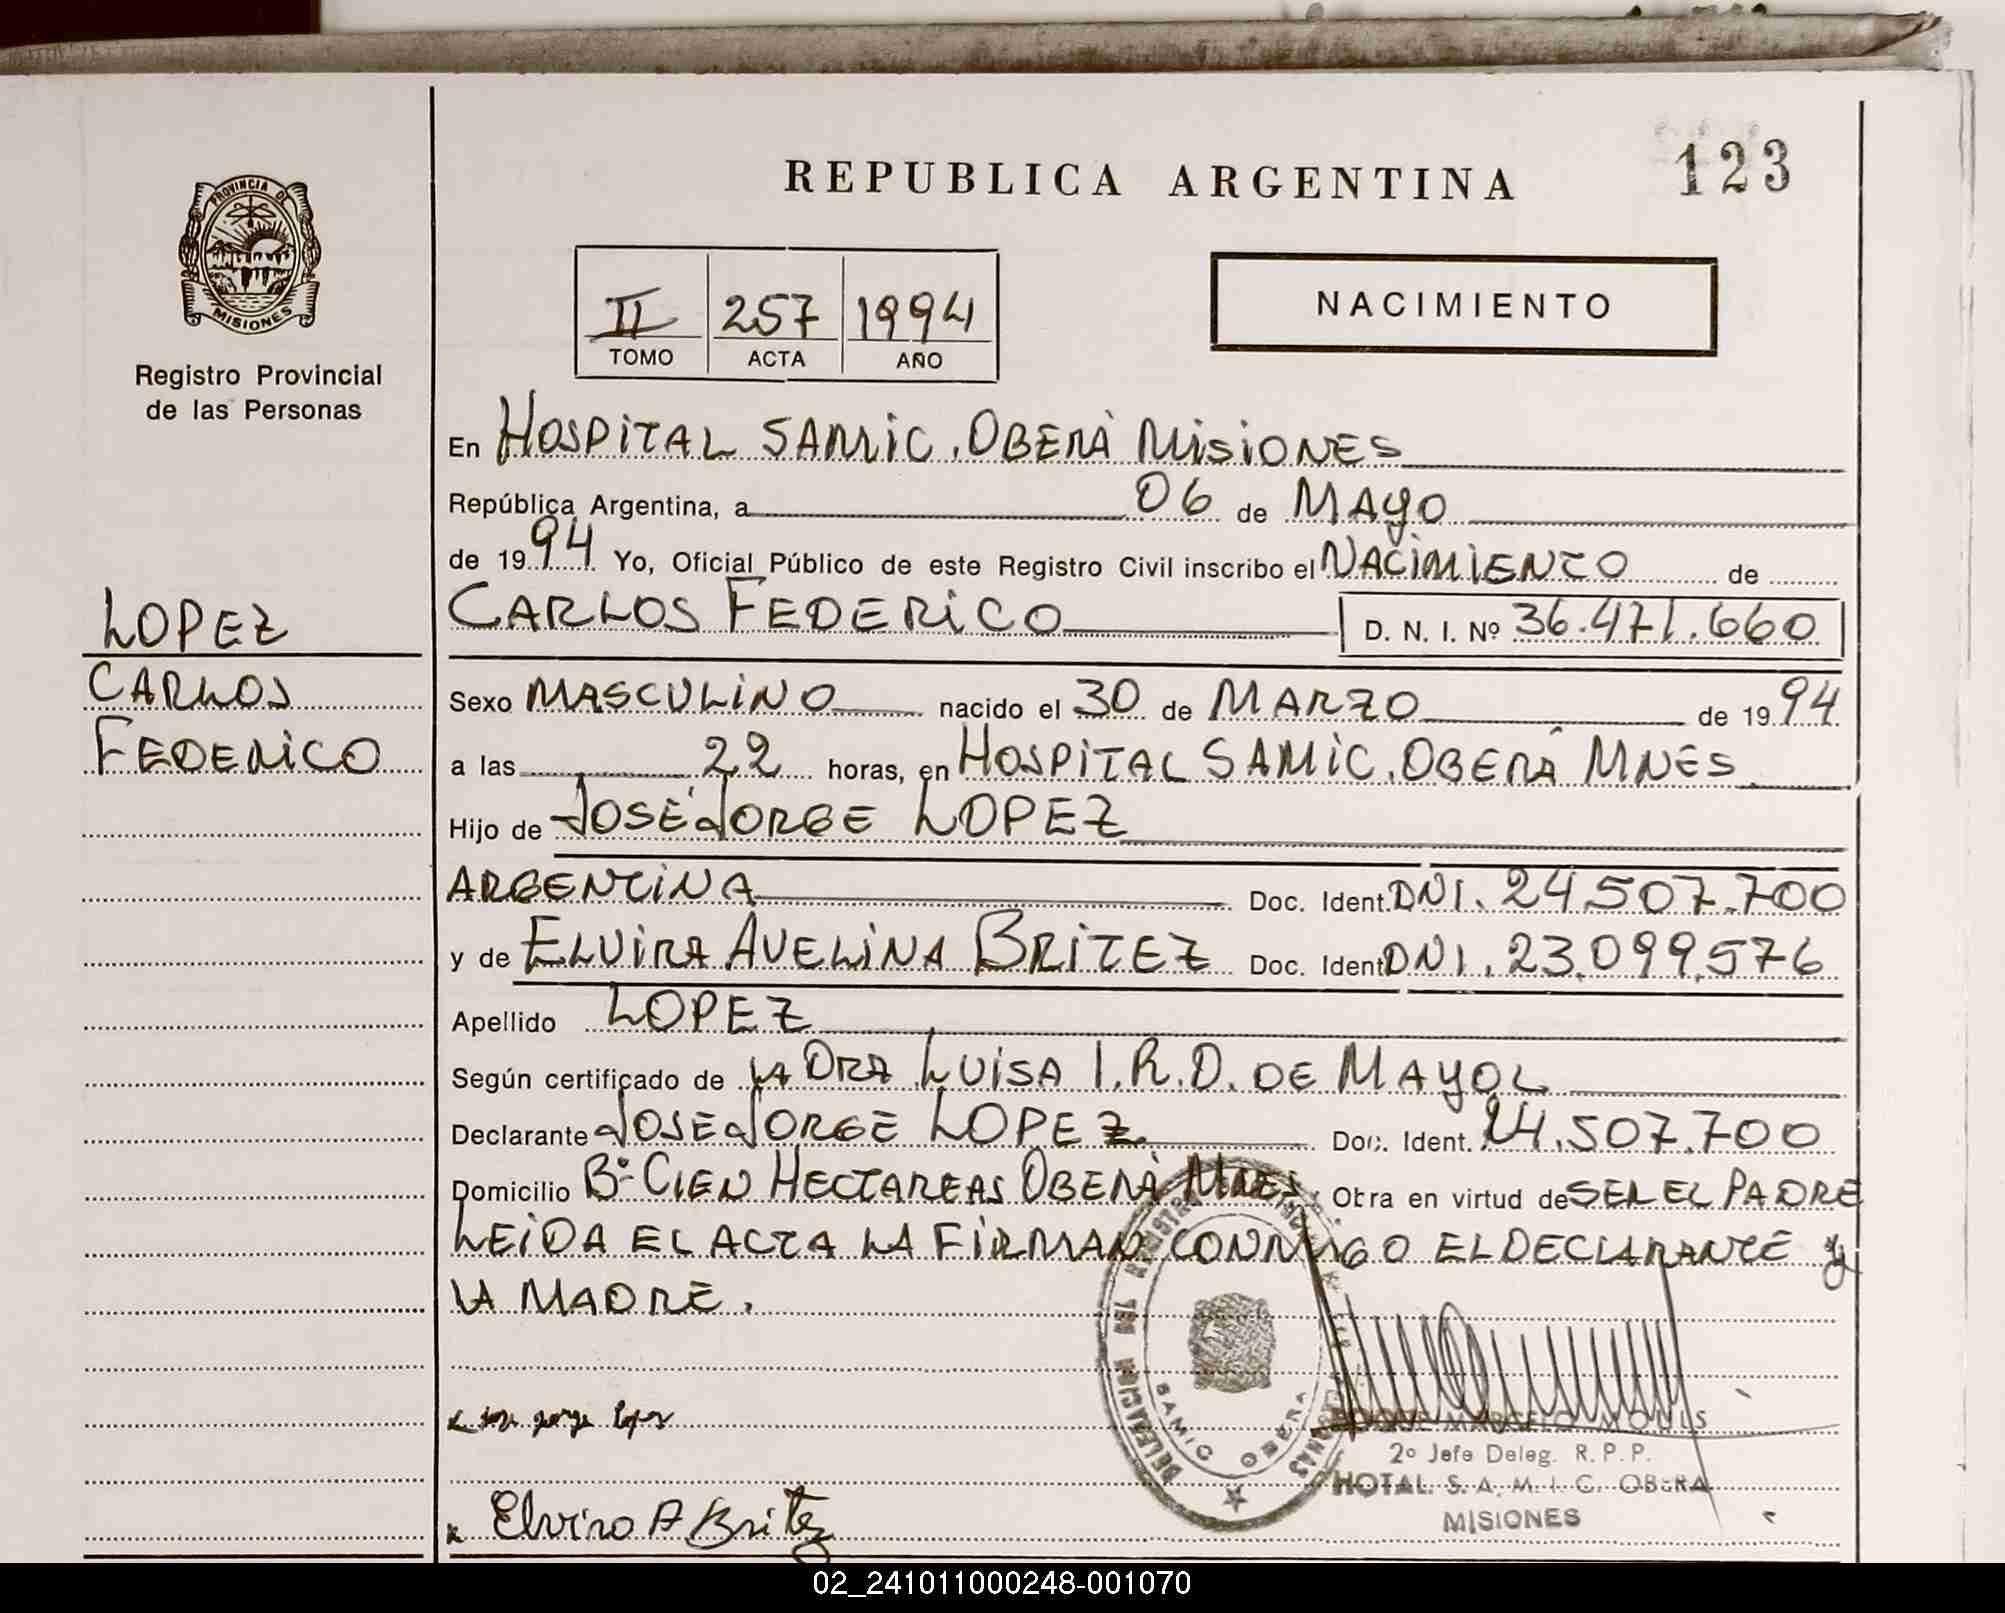 REPUBLICA ARGENTINA
123
PROVINCIA DE
MISIONES
Registro Provincial
de las Personas
II 257 1994
TOMO ACTA AÑO
NACIMIENTO
LOPEZ
CARLOS
FEDERICO
En HOSPITAL SAMIC. OBERÁ MISIONES
República Argentina, a 06 de MAYO
de 1994 Yo, Oficial Público de este Registro Civil inscribo el NACIMIENTO de
CARLOS FEDERICO D. N. I. Nº 36.471.660
Sexo MASCULINO nacido el 30 de MARZO de 1994
a las 22 horas, en HOSPITAL SAMIC. OBERÁ MNES
Hijo de JOSÉ JORGE LOPEZ
ARGENTINA Doc. Ident. DNI. 24.507.700
y de ELVIRA AVELINA BRITEZ Doc. Ident DNI. 23.099.576
Apellido LOPEZ
Según certificado de LA DRA LUISA I.R.D. DE MAYOL
Declarante JOSE JORGE LOPEZ Doc. Ident. 24.507.700
Domicilio Bº CIEN HECTAREAS OBERÁ MNES. Obra en virtud de SER EL PADRE
LEIDA EL ACTA LA FIRMAN CONMIGO EL DECLARANTE y
LA MADRE.
jose jorge lopez
Elvira A Britez
SAMIC OBERA
2º Jefe Deleg. R.P.P.
HOTAL S.A.M.I.C. OBERA
MISIONES
02_241011000248-001070